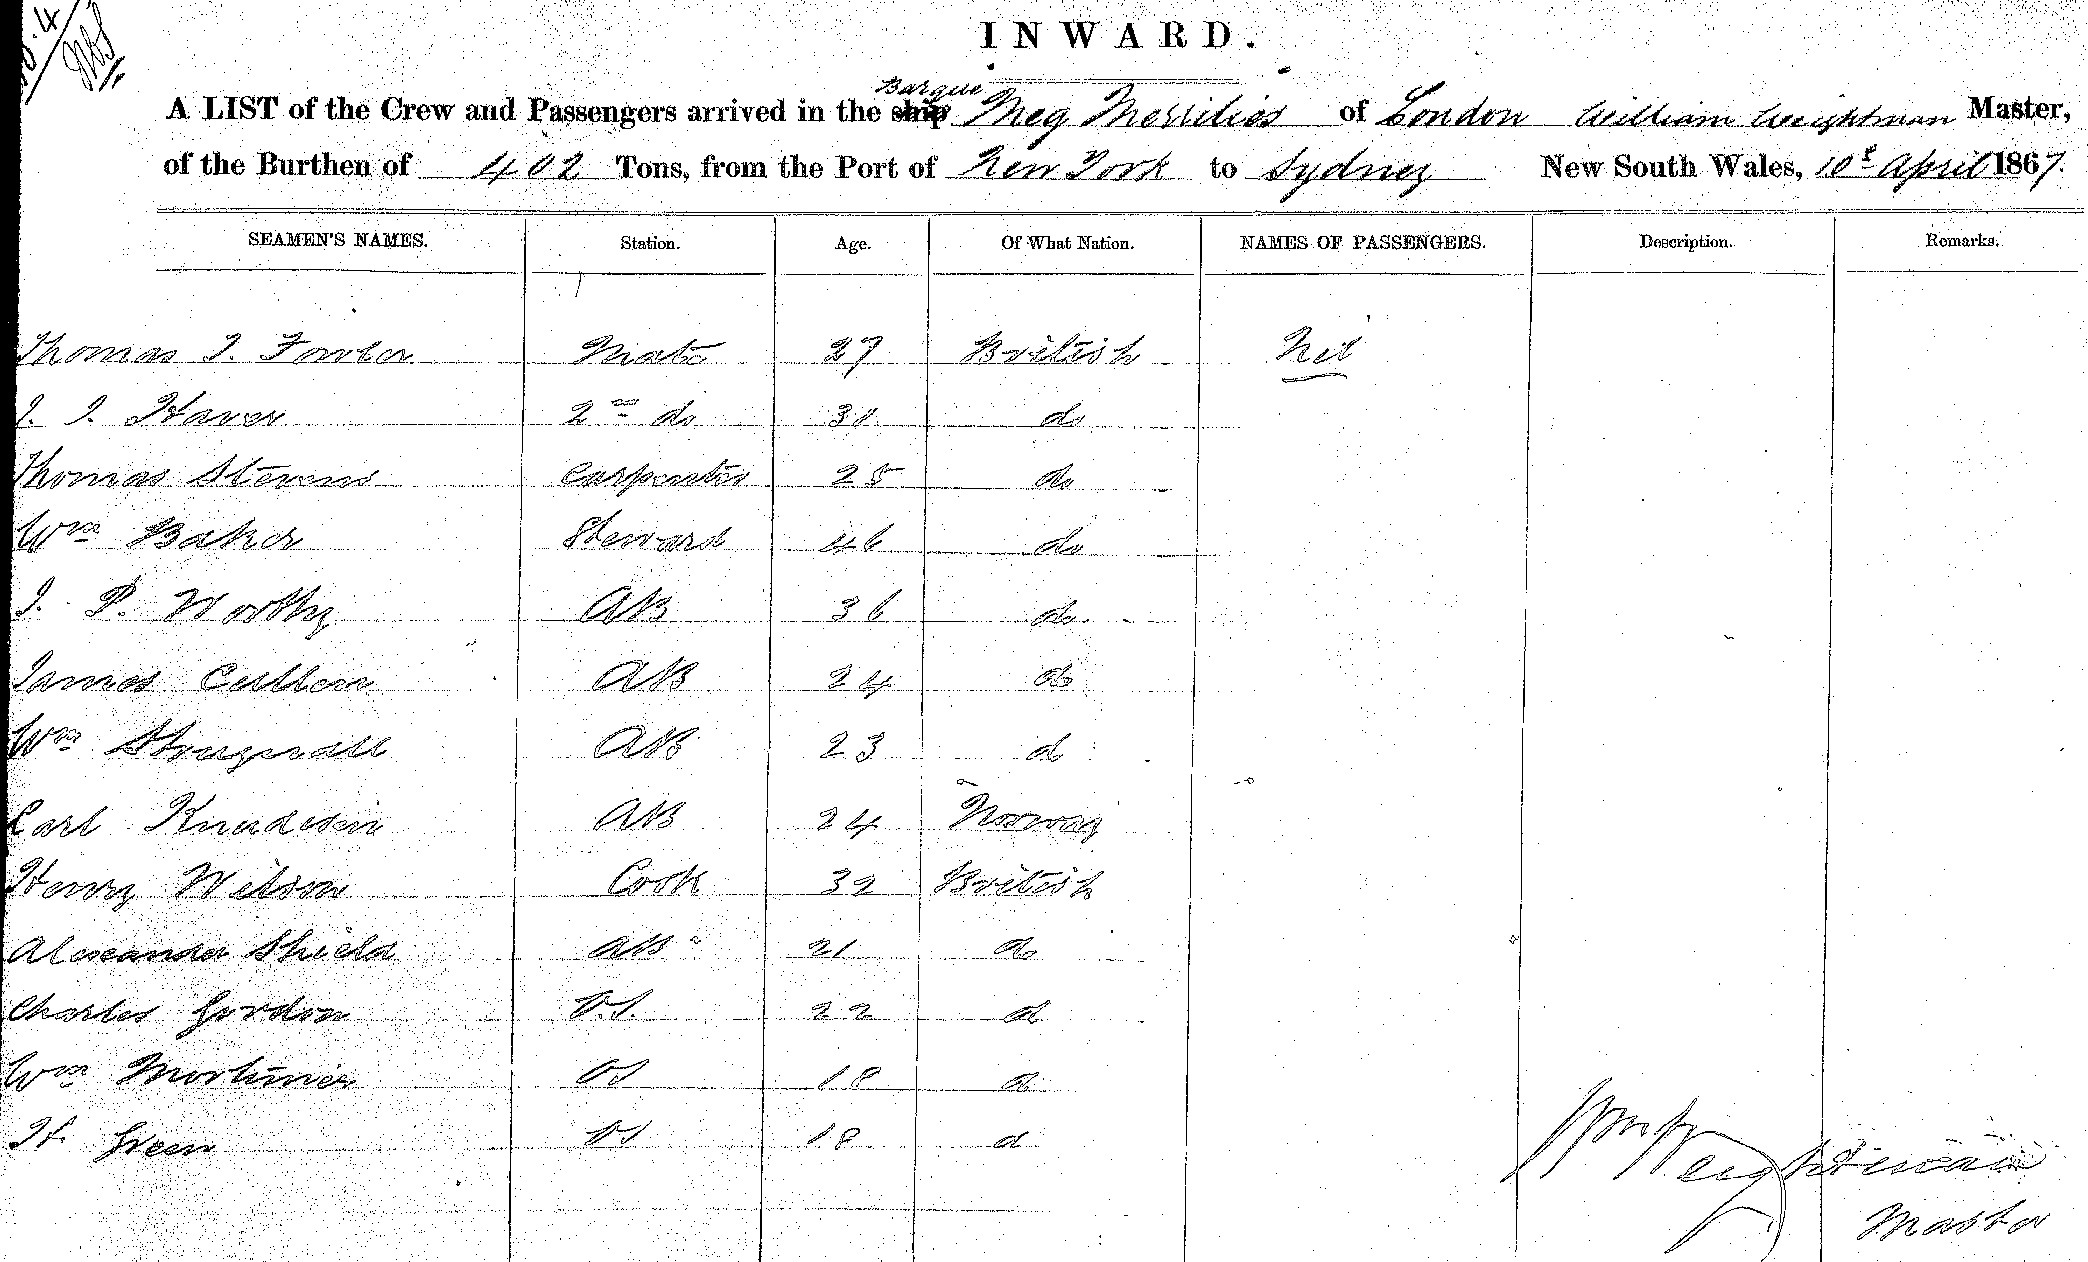 INWARD.
Barque
A LIST of the Crew and Passengers arrived in the ship Meg Merrilies of London William Weightman Master,
of the Burthen of 402 Tons, from the Port of New York to Sydney New South Wales, 10th April 1867.
SEAMEN'S NAMES. Station. Age. Of What Nation. NAMES OF PASSENGERS. Description. Remarks.
Thomas J. Fowler Mate 27 British Nil
J. J. Haver 2nd do do
Thomas Stevens Carpenter 25 do
Wm Baker Steward 46 do
J. P. Worthy AB 36 do
James Cullen AB 24 do
Wm AB 23 do
Carl Knudesin AB 24 Norway
Henry Wilson Cook 32 British
Alexander Shield AB 21 do
Charles Gordon O.S. 22 d
Wm Mortimer OS 18 d
H. Green OS 18 d
Wm Weightman
Master